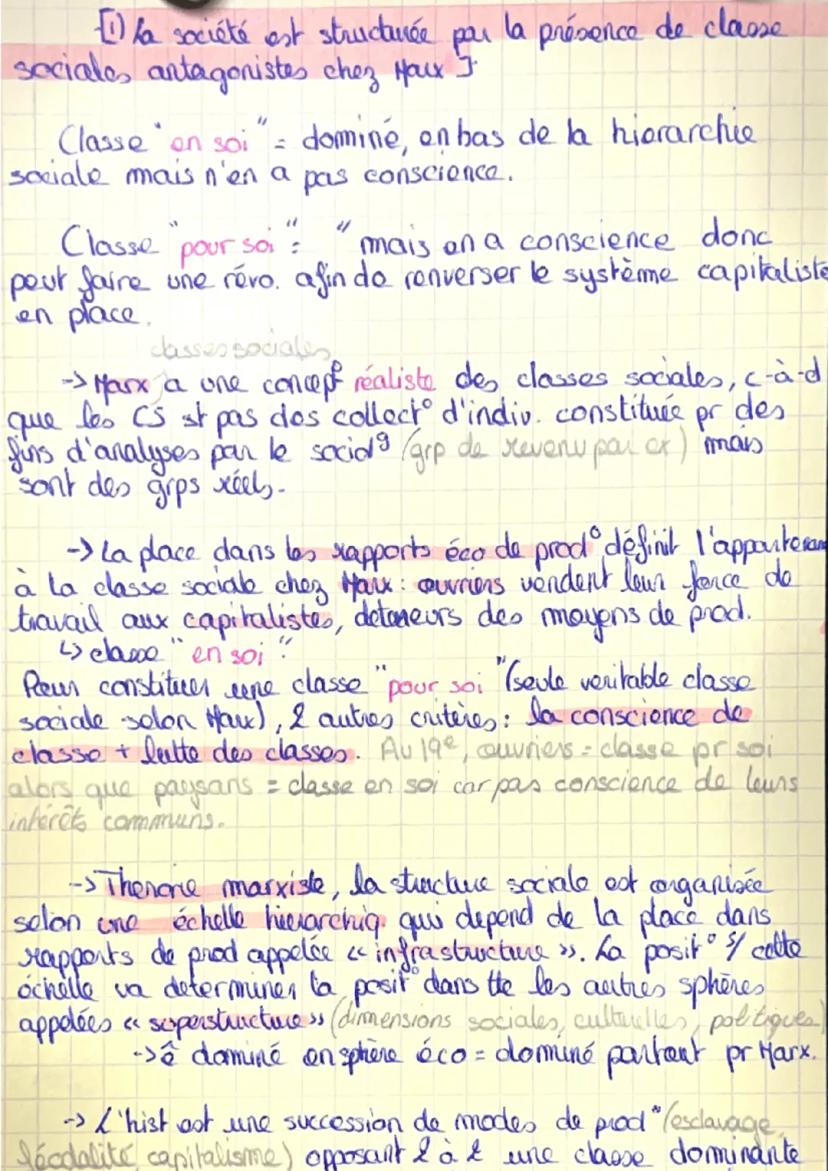 [1) La société est structurée par la présence de classe
sociales antagonistes chez Marx ]
Classe "en soi" = dominé, en bas de la hiérarchie
sociale mais n'en a pas conscience.
Classe "pour soi" = " mais en a conscience donc
peut faire une révo. afin de renverser le système capitaliste
en place.
classes sociales
-> Marx a une concept° réaliste des classes sociales, c-à-d
que les CS st pas des collect° d'indiv. constituée pr des
fins d'analyses par le sociolg (grp de revenu par ex) mais
sont des grps réels.
-> La place dans les rapports éco de prod° définit l'appartenan
à la classe sociale chez Marx : ouvriers vendent leur force de
travail aux capitalistes, déteneurs des moyens de prod.
↳ classe "en soi".
Pour constituer une classe "pour soi" (seule véritable classe
sociale selon Marx), 2 autres critères : la conscience de
classe + lutte des classes. Au 19e, ouvriers = classe pr soi
alors que paysans = classe en soi car pas conscience de leurs
intérêts communs.
-> Théorie marxiste, la structure sociale est organisée
selon une échelle hiérarchiq. qui depend de la place dans
rapports de prod appelée « infrastructure ». La posit° s/ cette
échelle va determiner la posit° dans tte les autres sphères
appelées « superstructure » (dimensions sociales, culturelles, politiques)
-> ê dominé en sphère éco = dominé partout pr Marx.
-> L'hist est une succession de modes de prod° (esclavage,
féodalité, capitalisme) opposant 2 à 2 une classe dominante